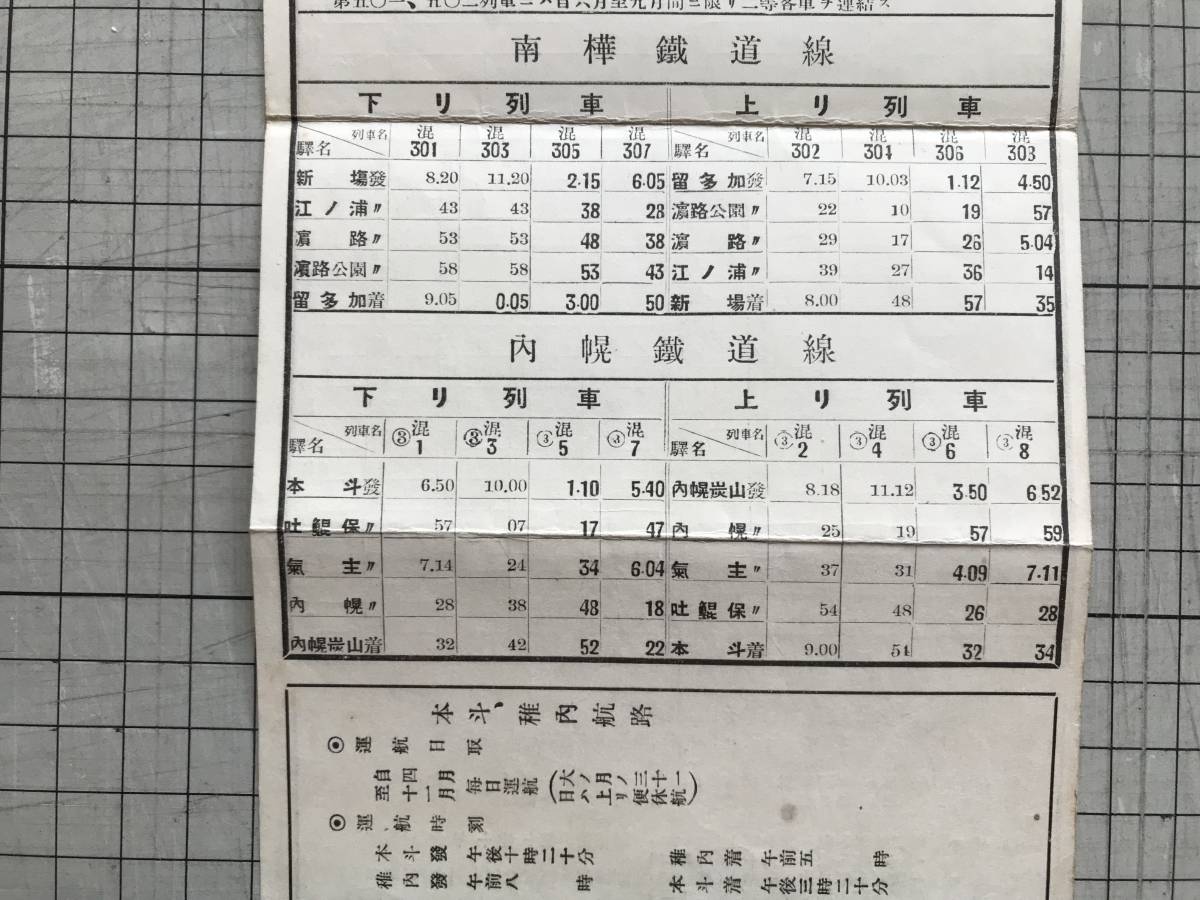 第五〇一、五〇二列車ニハ自六月至九月間ニ限リ二等客車ヲ連結ス
南樺鐵道線
下リ列車 上リ列車
列車名 混 混 混 混 列車名 混 混 混 混
驛名 301 303 305 307 驛名 302 304 306 303
新場發 8.20 11.20 2.15 6.05 留多加發 7.15 10.03 1.12 4.50
江ノ浦〃 43 43 38 28 濵路公園〃 22 10 19 57
濵路〃 53 53 48 38 濵路〃 29 17 26 5.04
濵路公園〃 58 58 53 43 江ノ浦〃 39 27 36 14
留多加着 9.05 0.05 3.00 50 新場着 8.00 48 57 35
內幌鐵道線
下リ列車 上リ列車
列車名 ③混 ③混 ③混 ③混 列車名 ③混 ③混 ③混 ③混
驛名 1 3 5 7 驛名 2 4 6 8
本斗發 6.50 10.00 1.10 5.40 內幌炭山發 8.18 11.12 3.50 6 52
吐鯤保〃 57 07 17 47 內幌〃 25 19 57 59
氣主〃 7.14 24 34 6.04 氣主〃 37 31 4.09 7.11
內幌〃 28 38 48 18 吐鯤保〃 54 48 26 28
內幌炭山着 32 42 52 22 本斗着 9.00 51 32 34
本斗、稚內航路
◉運航日取
自四月至十一月每日運航(大ノ月ノ三十一日ハ上リ便休航)
◉運航時刻
本斗發 午後十時二十分 稚內着 午前五時
稚內發 午前八時 本斗着 午後三時二十分